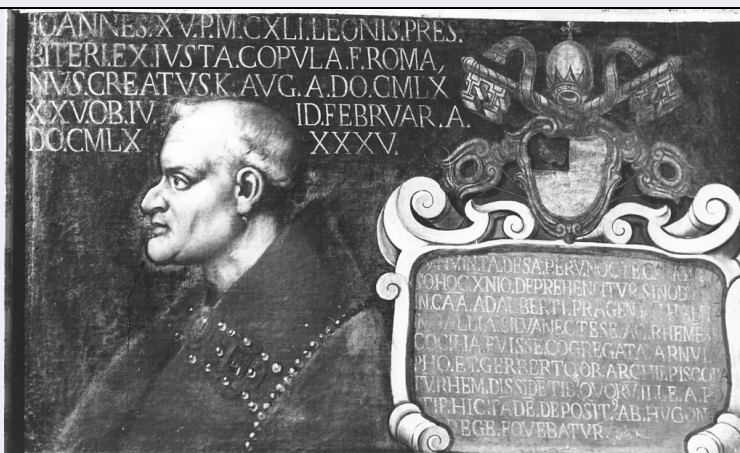 IOANNES.XV.P.M.CXLI.LEONIS.PRES.
BITERI.EX.IVSTA.COPVLA.F.ROMA,
NVS.CREATVS.K.AVG.A.DO.CMLX
XXV.OB.IV ID.FEBRVAR.A.
DO.CMLX XXXV.
COHOC.XNIO.DEPREHENDITVR.SINOD
ADALBERTI.PRAGEN
SILVANECTESE.AC.RHEME
COCILIA.FVISSE.COGREGATA.ARNVL
PHO.ET.GERBERTO.OB.ARCHIEPISCOPA
TV.RHEM.DISSIDETIB9.QVORV.ILLE.A.P
TIF.HIC.TADE.DEPOSIT9.AB.HVGON
REGE.FOVEBATVR.